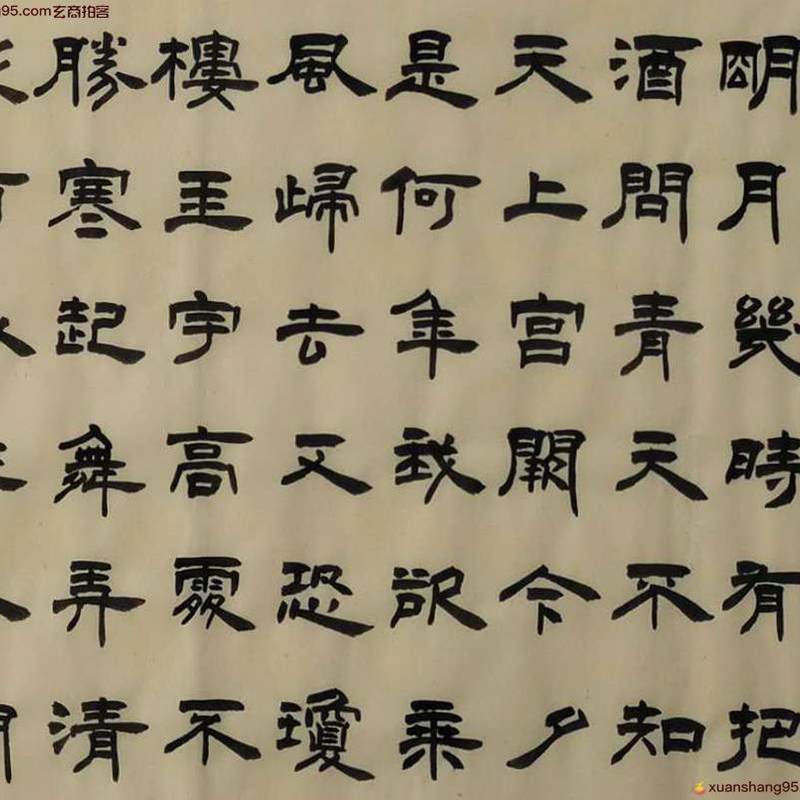 明月幾時有把
酒問青天不知
天上宮闕今夕
是何年我欲乘
風歸去又恐瓊
樓玉宇高處不
勝寒起舞弄清
g95.com玄商拍客
xuanshang95